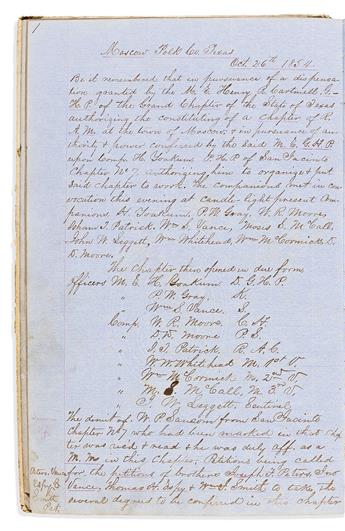 1
Moscow Polk Co. Texas
Oct. 26th 1854.
Be it remembered that in pursuance of a dispensa
tion granted by the M. E. Henry Cartmell, G-
H P of the Grand Chapter of the State of Texas
authorizing the constituting of a chapter of R.
A. M. at the town of Moscow, & in pursuance of au-
thority & power confered by the said M. E. G. H P
upon Comp. H. Yoakum, P. H P of San Jacinto
Chapter No 7, authorizing him to organize & put
said chapter to work. The companions met in con
vocation this evening at candle-light present Com
panions H. Yoakum, P. W. Gray, W. R. Moore,
T. Patrick, Wm S. Vance, Moses S. McCall,
John W. Leggett, Wm Whitehead, Wm McCormick D.
D. Moore.
The Chapter then opened in due form
Officers M. E. H. Yoakum D. G. H. P.
" P. W. Gray, K.
" Wm S. Vance, S.
Comp. W. R. Moore, C. H.
" D. D. Moore P. S.
" T. Patrick, R. A. C.
" W. W. Whitehead M. 1st V
" Wm McCormick M. 2nd V.
" M. S. McCall, M. 3d V.
" W. Leggett, Centinel
The demit of W. P. Sansom from San Jacinto
Chapter No 7, who had been marked in that Chap
ter was read, & was duly aff. as a
M. M in this Chapter. Petitions being called
for the petitions of brothers
Vance, Thomas H. Espy & Wm S. Smith to take the
several degrees to be confered in this chapter
Vance
Espy &
Smith
Pet.